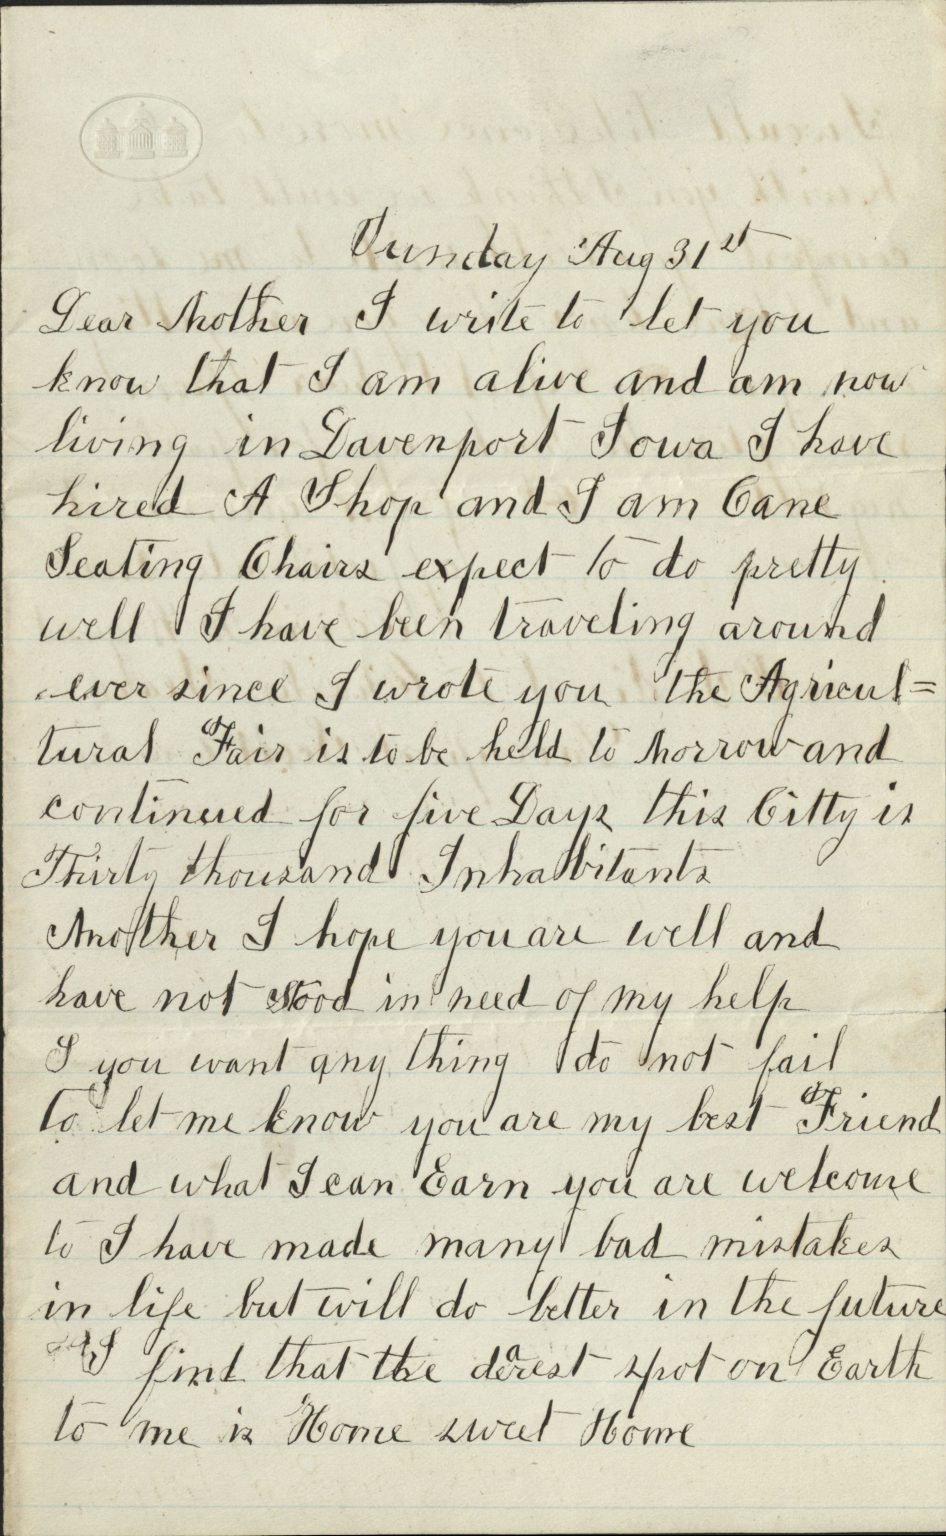 Sunday Aug 31st
Dear Mother I write to let you
know that I am alive and am now
living in Davenport Iowa I have
hired A Shop and I am Cane
Seating Chairs expect to do pretty
well I have been traveling around
ever since I wrote you the Agricul=
tural Fair is to be held to Morrow and
continued for five Days this Citty is
Thirty thousand Inhabitants
Mother I hope you are well and
have not stood in need of my help
I you want any thing do not fail
to let me know you are my best Friend
and what I can Earn you are welcome
to I have made many bad mistakes
in life but will do better in the future
I find that the dearest spot on Earth
to me is Home sweet Home